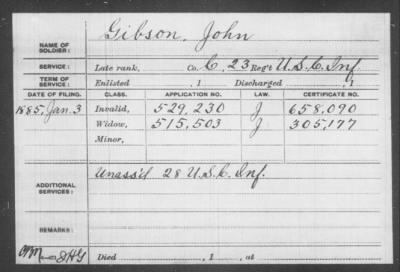 Gibson, John
NAME OF SOLDIER:
SERVICE: Late rank, Co. C, 23 Reg't U.S.C. Inf.
TERM OF SERVICE: Enlisted , 1 Discharged , 1
DATE OF FILING. CLASS. APPLICATION NO. LAW. CERTIFICATE NO.
1885, Jan. 3 Invalid, 529,230 J 658,090
Widow, 515,503 J 305,177
Minor,
ADDITIONAL SERVICES: Unass'd 28 U.S.C. Inf.
REMARKS:
Died , 1 , at